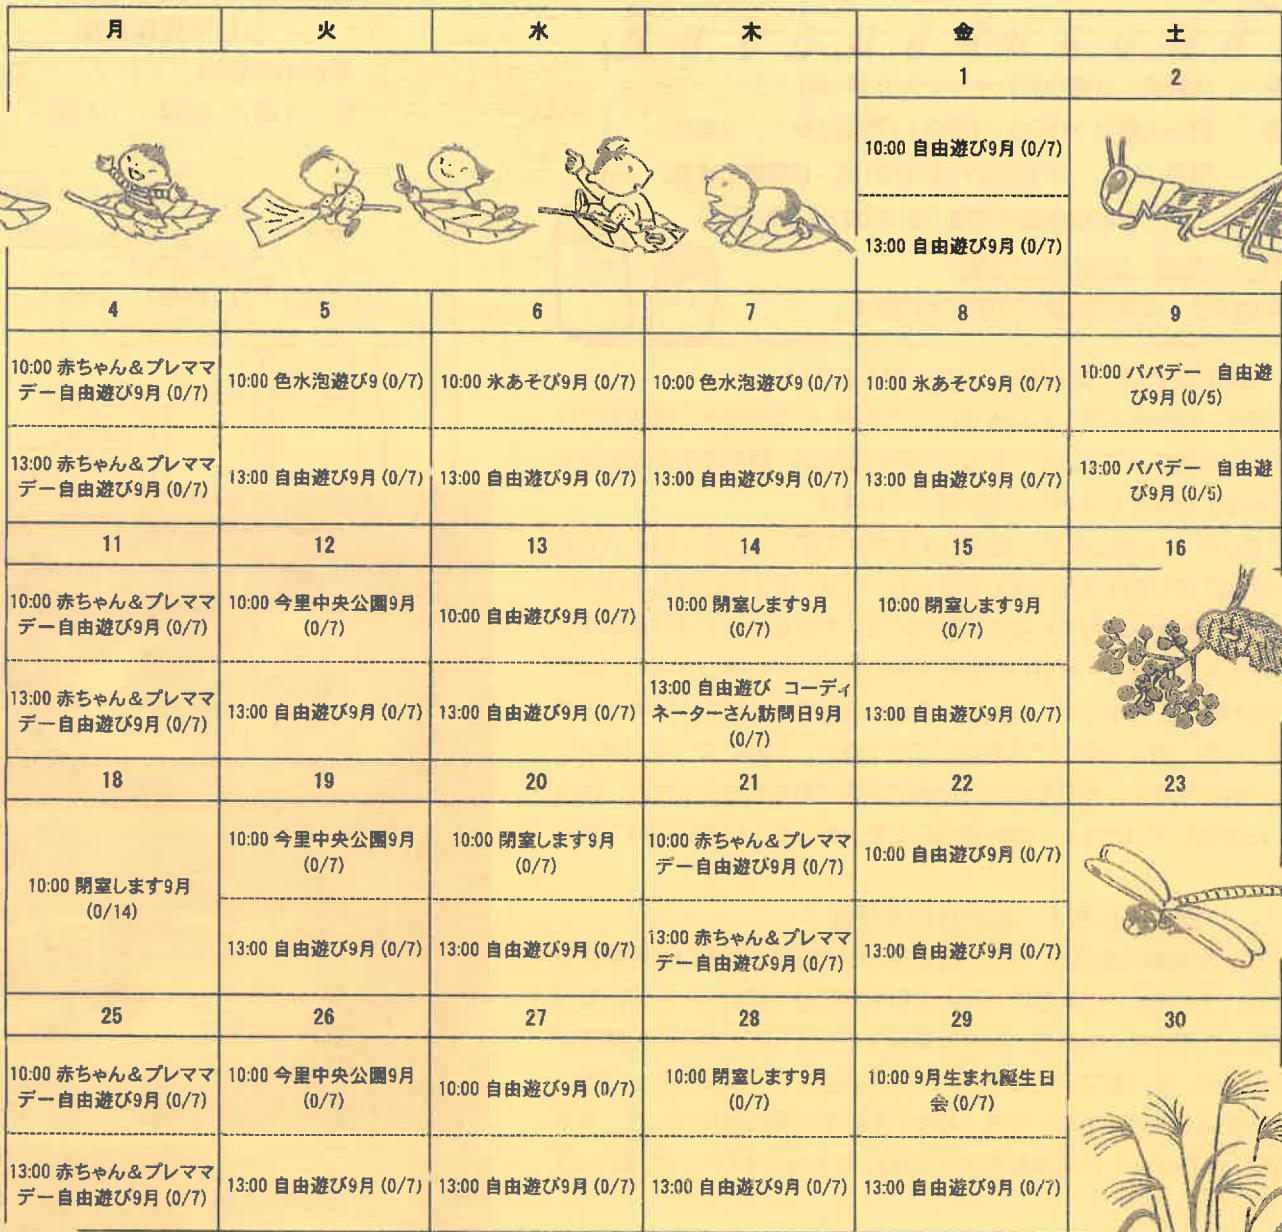 月 火 水 木 金 土
1 2
10:00 自由遊び9月 (0/7)
13:00 自由遊び9月 (0/7)
4 5 6 7 8 9
10:00 赤ちゃん&プレママ
デー自由遊び9月 (0/7)
10:00 色水泡遊び9 (0/7)
10:00 氷あそび9月 (0/7)
10:00 色水泡遊び9 (0/7)
10:00 氷あそび9月 (0/7)
10:00 パパデー 自由遊
び9月 (0/5)
13:00 赤ちゃん&プレママ
デー自由遊び9月 (0/7)
13:00 自由遊び9月 (0/7)
13:00 自由遊び9月 (0/7)
13:00 自由遊び9月 (0/7)
13:00 自由遊び9月 (0/7)
13:00 パパデー 自由遊
び9月 (0/5)
11 12 13 14 15 16
10:00 赤ちゃん&プレママ
デー自由遊び9月 (0/7)
10:00 今里中央公園9月
(0/7)
10:00 自由遊び9月 (0/7)
10:00 閉室します9月
(0/7)
10:00 閉室します9月
(0/7)
13:00 赤ちゃん&プレママ
デー自由遊び9月 (0/7)
13:00 自由遊び9月 (0/7)
13:00 自由遊び9月 (0/7)
13:00 自由遊び コーディ
ネーターさん訪問日9月
(0/7)
13:00 自由遊び9月 (0/7)
18 19 20 21 22 23
10:00 閉室します9月
(0/14)
10:00 今里中央公園9月
(0/7)
10:00 閉室します9月
(0/7)
10:00 赤ちゃん&プレママ
デー自由遊び9月 (0/7)
10:00 自由遊び9月 (0/7)
13:00 自由遊び9月 (0/7)
13:00 自由遊び9月 (0/7)
13:00 赤ちゃん&プレママ
デー自由遊び9月 (0/7)
13:00 自由遊び9月 (0/7)
25 26 27 28 29 30
10:00 赤ちゃん&プレママ
デー自由遊び9月 (0/7)
10:00 今里中央公園9月
(0/7)
10:00 自由遊び9月 (0/7)
10:00 閉室します9月
(0/7)
10:00 9月生まれ誕生日
会 (0/7)
13:00 赤ちゃん&プレママ
デー自由遊び9月 (0/7)
13:00 自由遊び9月 (0/7)
13:00 自由遊び9月 (0/7)
13:00 自由遊び9月 (0/7)
13:00 自由遊び9月 (0/7)